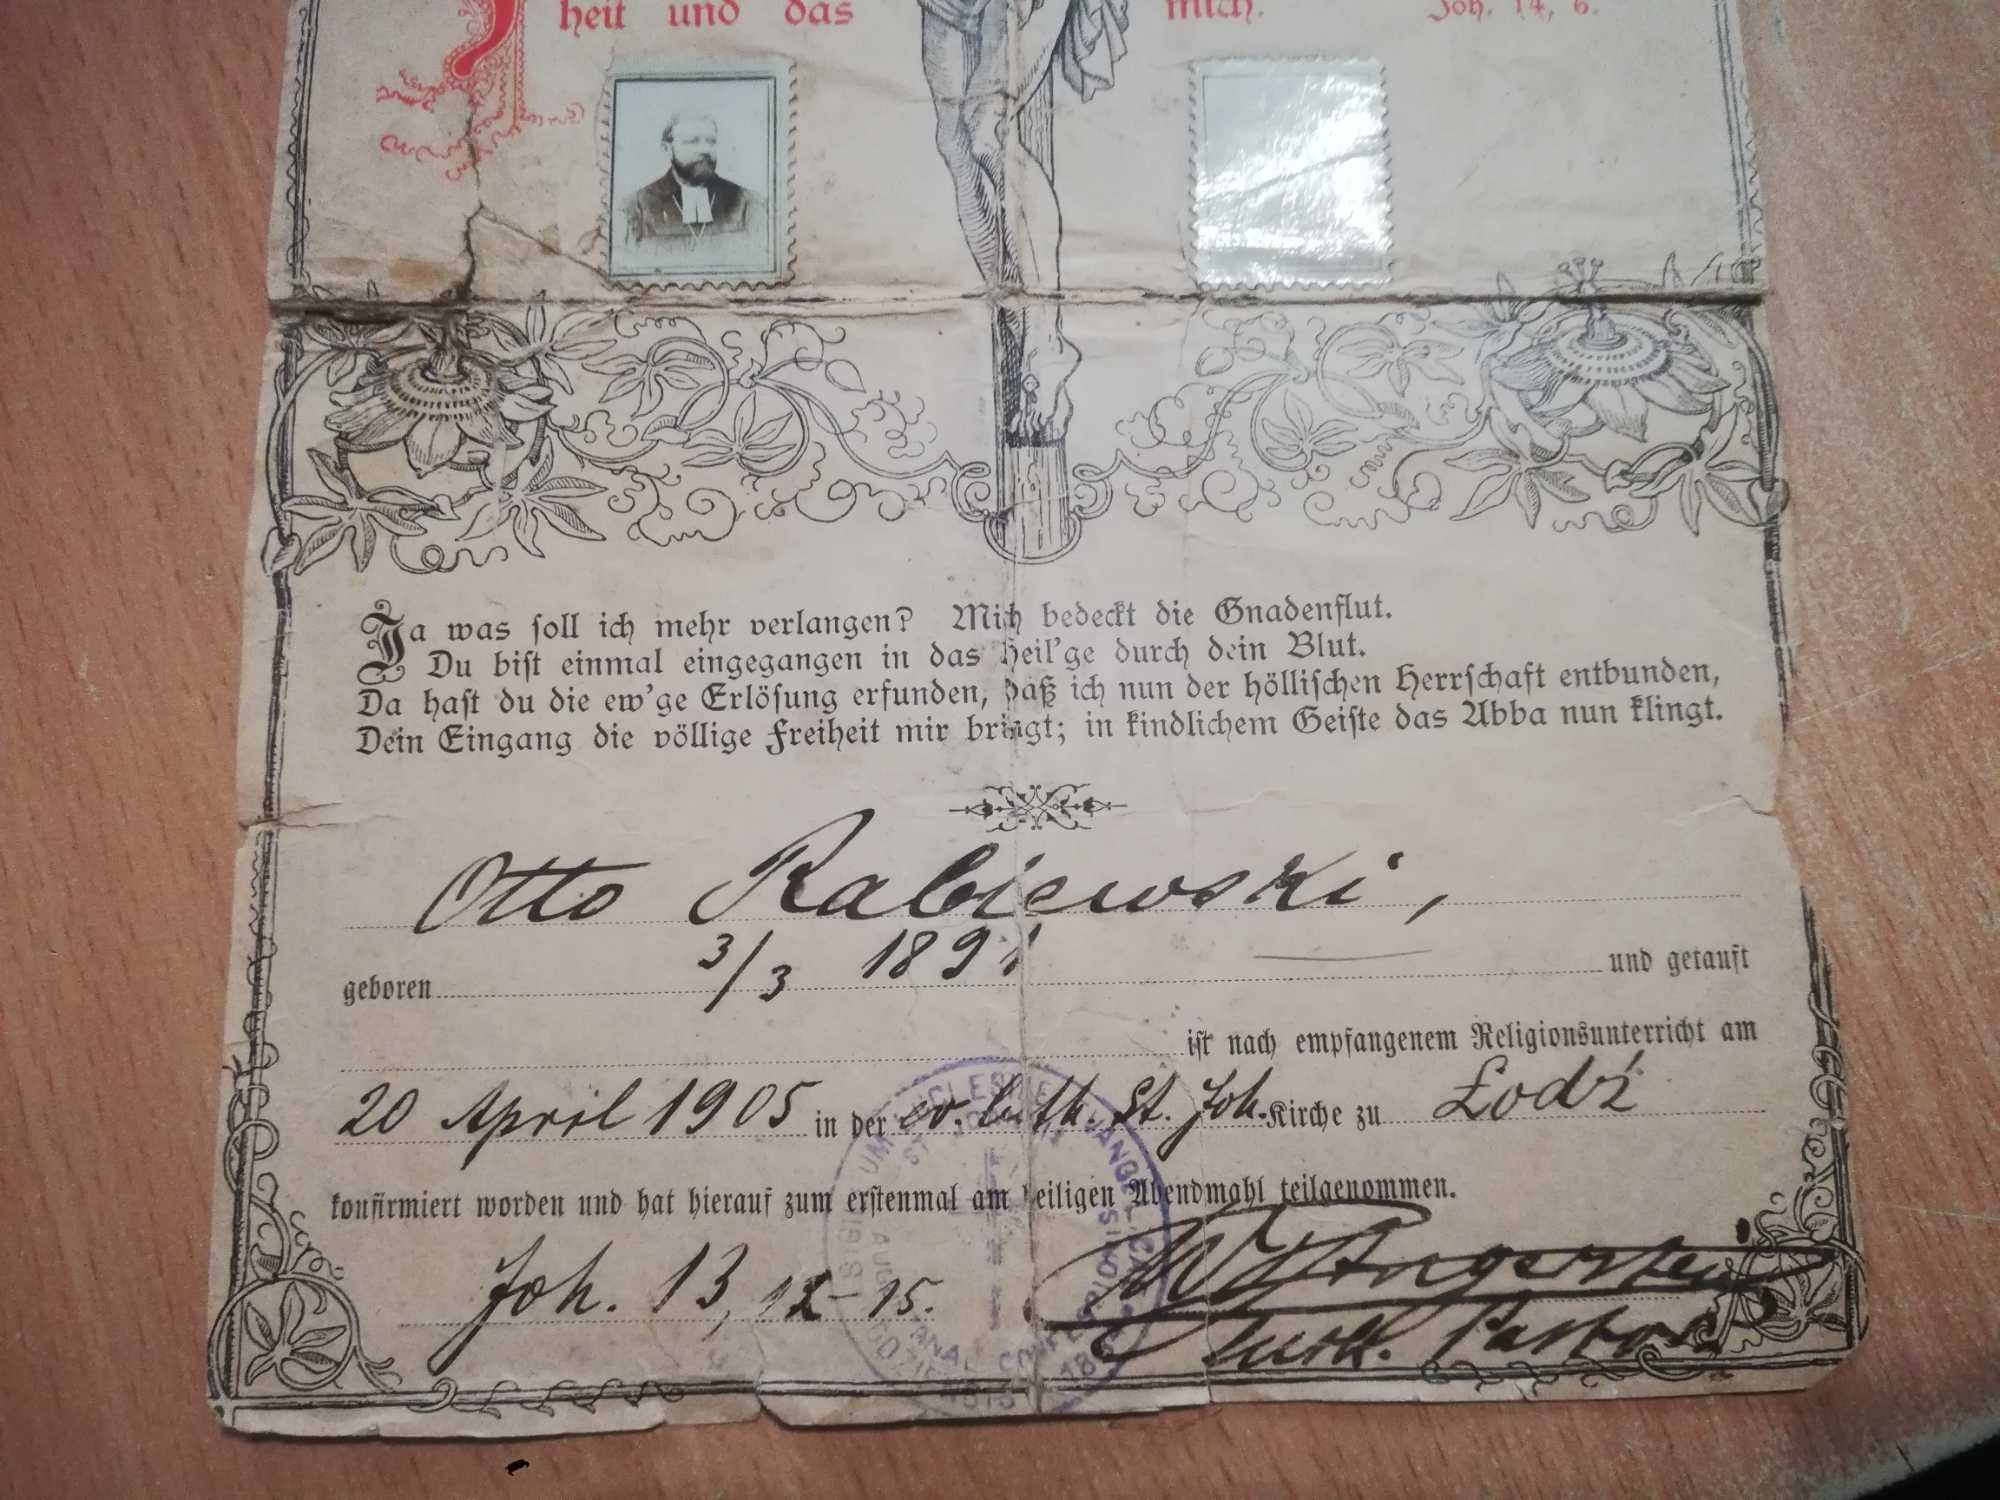 heit und das
mich. Joh. 14, 6.
Ja was soll ich mehr verlangen? Mich bedeckt die Gnadenflut.
Du bist einmal eingegangen in das Heil'ge durch dein Blut.
Da hast du die ew'ge Erlösung erfunden, daß ich nun der höllischen Herrschaft entbunden,
Dein Eingang die völlige Freiheit mir bringt; in kindlichem Geiste das Abba nun klingt.
Otto Rabiewski,
geboren 3/3 1891 und getauft
ist nach empfangenem Religionsunterricht am
20 April 1905 in der ev. luth. St. Joh. Kirche zu Łodź
konfirmiert worden und hat hierauf zum erstenmal am heiligen Abendmahl teilgenommen.
Joh. 13, 12-15. W. P. Angerstein
luth. Pastor